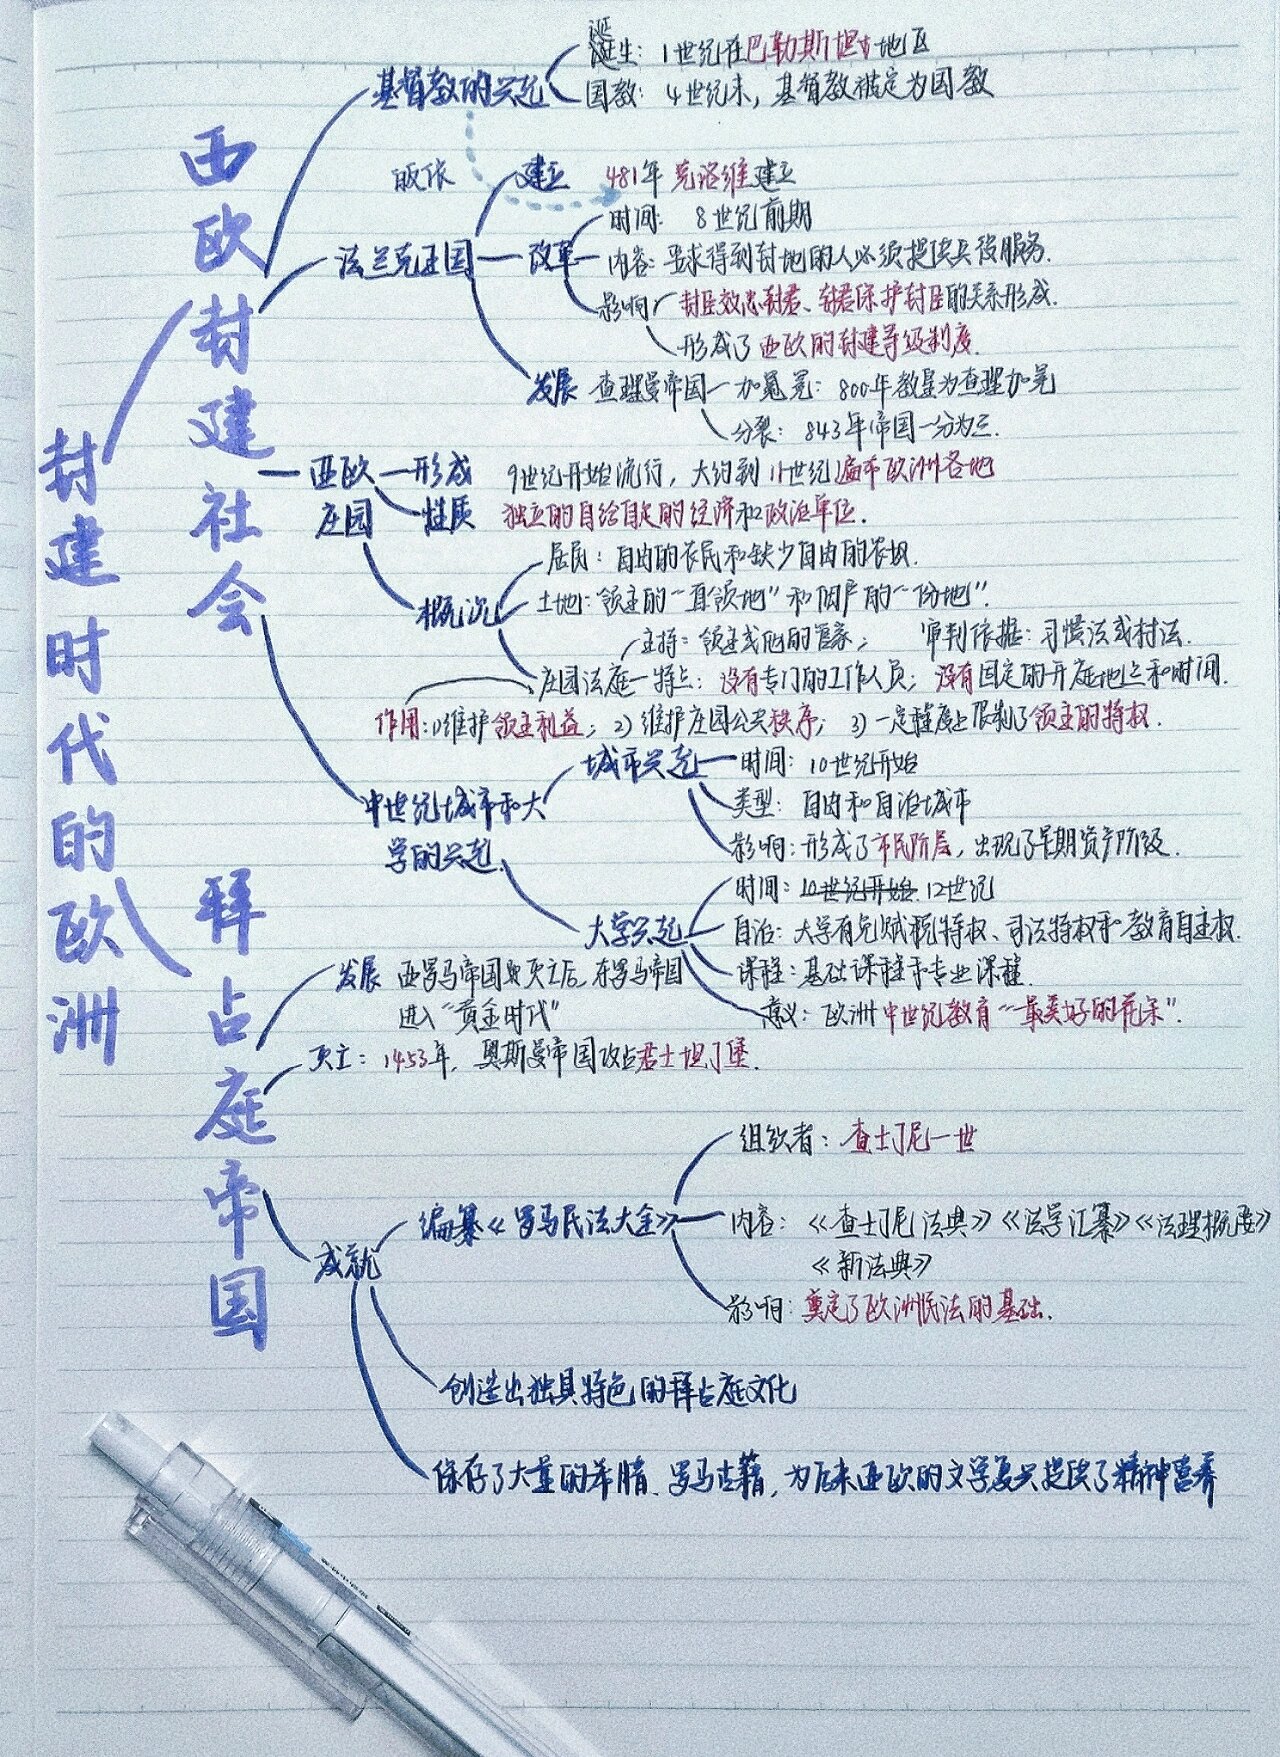 封建时代的欧洲
西欧封建社会
基督教的兴起
诞生：1世纪在巴勒斯坦地区
国教：4世纪末，基督教被定为国教
皈依
法兰克王国
建立 481年 克洛维建立
改革
时间： 8世纪前期
内容：要求得到封地的人必须提供兵役服务.
影响
封臣效忠封君、封君保护封臣的关系形成.
形成了西欧的封建等级制度.
发展 查理曼帝国 加冕：800年教皇为查理加冕
分裂：843年帝国一分为三.
西欧庄园
形成 9世纪开始流行，大约到11世纪遍布欧洲各地
性质 独立的自给自足的经济和政治单位.
概况
居民：自由的农民和缺少自由的农奴.
土地：领主的“直领地”和佃户的“份地”.
主持：领主或他的管家； 审判依据：习惯法或村法.
庄园法庭 特点：没有专门的工作人员；没有固定的开庭地点和时间.
作用：1)维护领主利益；2)维护庄园公共秩序；3)一定程度上限制了领主的特权.
中世纪城市和大
学的兴起
城市兴起
时间：10世纪开始
类型：自由和自治城市
影响：形成了市民阶层，出现了早期资产阶级.
大学兴起
时间：10世纪开始 12世纪
自治：大学有免赋税特权、司法特权和教育自主权.
课程：基础课程和专业课程.
意义：欧洲中世纪教育“最美好的花朵”.
拜占庭帝国
发展 西罗马帝国灭亡后，东罗马帝国
进入“黄金时代”
灭亡：1453年，奥斯曼帝国攻占君士坦丁堡.
成就
编纂《罗马民法大全》
组织者：查士丁尼一世
内容：《查士丁尼法典》《法学汇纂》《法理概要》
《新法典》
影响：奠定了欧洲民法的基础.
创造出独具特色的拜占庭文化
保存了大量的希腊、罗马古籍，为后来西欧的文学复兴提供了精神营养